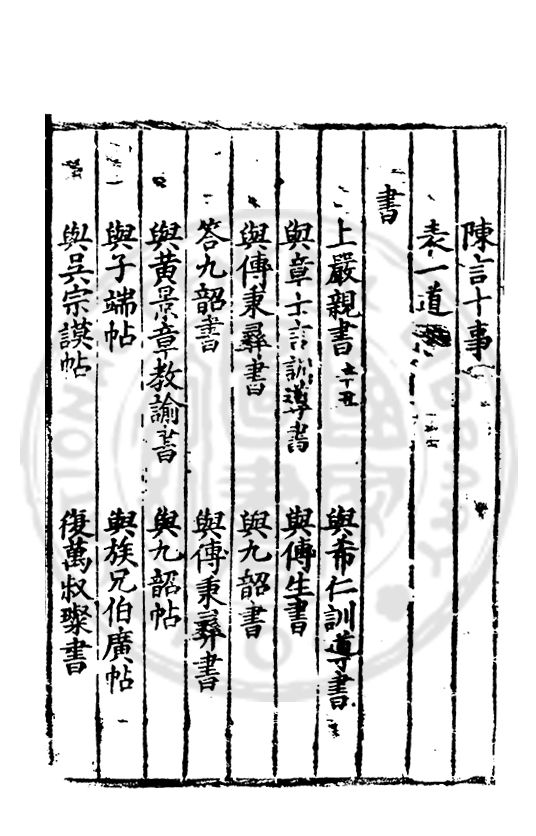 陳言十事
表一道
書
上嚴親書 辛丑 與希仁訓導書
與章士言訓導書 與傅生書
與傅秉彞書 與九韶書
答九韶書 與傅秉彞書
與黄景章教諭書 與九韶帖
與子端帖 與族兄伯廣帖
與吳宗謨帖 復萬叔璨書